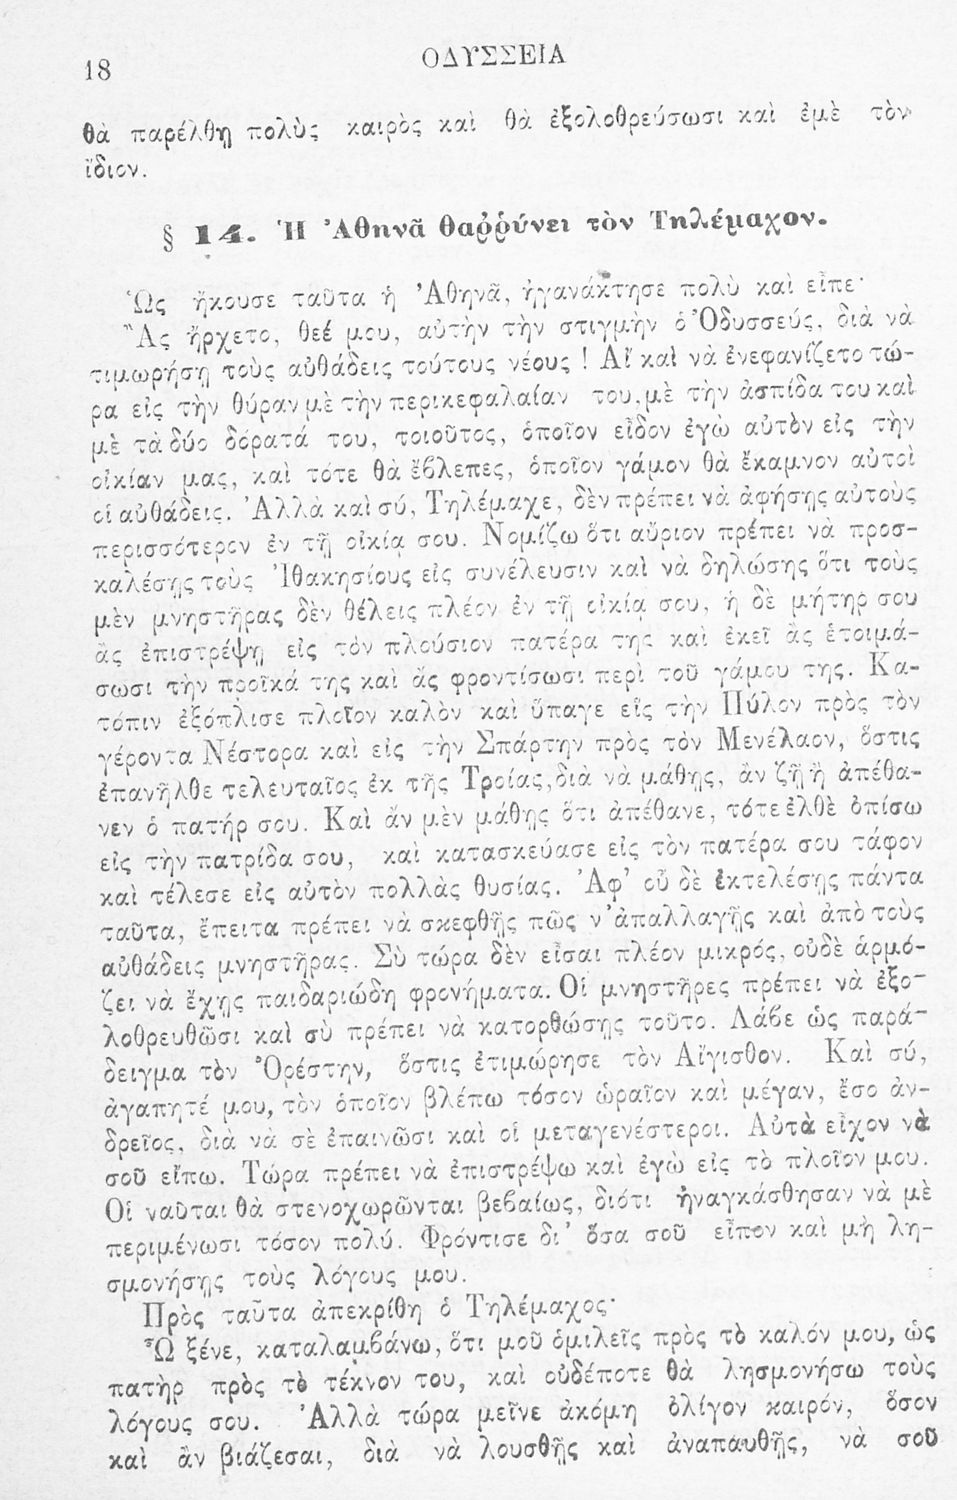 18
ΟΔΥΣΣΕΙΑ
θὰ παρέλθῃ πολὺς καιρὸς καὶ θὰ ἐξολοθρεύσωσι καὶ ἐμὲ τὸν
ἴδιον.
§ 14. Ἡ Ἀθηνᾶ θαῤῥύνει τὸν Τηλέμαχον.
Ὡς ἤκουσε ταῦτα ἡ Ἀθηνᾶ, ἠγανάκτησε πολὺ καὶ εἶπε·
Ἂς ἤρχετο, θεέ μου, αὐτὴν τὴν στιγμὴν ὁ Ὀδυσσεύς, διὰ νὰ
τιμωρήσῃ τοὺς αὐθάδεις τούτους νέους ! Αἲ καὶ νὰ ἐνεφανίζετο τώ-
ρα εἰς τὴν θύραν μὲ τὴν περικεφαλαίαν του, μὲ τὴν ἀσπίδα του καὶ
μὲ τὰ δύο δόρατά του, τοιοῦτος, ὁποῖον εἶδον ἐγὼ αὐτὸν εἰς τὴν
οἰκίαν μας, καὶ τότε θὰ ἔβλεπες, ὁποῖον γάμον θὰ ἔκαμνον αὐτοὶ
οἱ αὐθάδεις. Ἀλλὰ καὶ σύ, Τηλέμαχε, δὲν πρέπει νὰ ἀφήσῃς αὐτοὺς
περισσότερον ἐν τῇ οἰκίᾳ σου. Νομίζω ὅτι αὔριον πρέπει νὰ προσ-
καλέσῃς τοὺς Ἰθακησίους εἰς συνέλευσιν καὶ νὰ δηλώσῃς ὅτι τοὺς
μὲν μνηστῆρας δὲν θέλεις πλέον ἐν τῇ οἰκίᾳ σου, ἡ δὲ μήτηρ σου
ἂς ἐπιστρέψῃ εἰς τὸν πλούσιον πατέρα της καὶ ἐκεῖ ἂς ἑτοιμά-
σωσι τὴν προῖκά της καὶ ἂς φροντίσωσι περὶ τοῦ γάμου της. Κα-
τόπιν ἐξόπλισε πλοῖον καλὸν καὶ ὕπαγε εἰς τὴν Πύλον πρὸς τὸν
γέροντα Νέστορα καὶ εἰς τὴν Σπάρτην πρὸς τὸν Μενέλαον, ὅστις
ἐπανῆλθε τελευταῖος ἐκ τῆς Τροίας, διὰ νὰ μάθῃς, ἂν ζῇ ἢ ἀπέθα-
νεν ὁ πατήρ σου. Καὶ ἂν μὲν μάθῃς ὅτι ἀπέθανε, τότε ἐλθὲ ὀπίσω
εἰς τὴν πατρίδα σου, καὶ κατασκεύασε εἰς τὸν πατέρα σου τάφον
καὶ τέλεσε εἰς αὐτὸν πολλὰς θυσίας. Ἀφ' οὗ δὲ ἐκτελέσῃς πάντα
ταῦτα, ἔπειτα πρέπει νὰ σκεφθῇς πῶς ν' ἀπαλλαγῇς καὶ ἀπὸ τοὺς
αὐθάδεις μνηστῆρας. Σὺ τώρα δὲν εἶσαι πλέον μικρός, οὐδὲ ἁρμό-
ζει νὰ ἔχῃς παιδαριώδη φρονήματα. Οἱ μνηστῆρες πρέπει νὰ ἐξο-
λοθρευθῶσι καὶ σὺ πρέπει νὰ κατορθώσῃς τοῦτο. Λάβε ὡς παρά-
δειγμα τὸν Ὀρέστην, ὅστις ἐτιμώρησε τὸν Αἴγισθον. Καὶ σύ,
ἀγαπητέ μου, τὸν ὁποῖον βλέπω τόσον ὡραῖον καὶ μέγαν, ἔσο ἀν-
δρεῖος, διὰ νὰ σὲ ἐπαινῶσι καὶ οἱ μεταγενέστεροι. Αὐτὰ εἶχον νὰ
σοῦ εἴπω. Τώρα πρέπει νὰ ἐπιστρέψω καὶ ἐγὼ εἰς τὸ πλοῖον μου.
Οἱ ναῦται θὰ στενοχωρῶνται βεβαίως, διότι ἠναγκάσθησαν νὰ μὲ
περιμένωσι τόσον πολύ. Φρόντισε δι' ὅσα σοῦ εἶπον καὶ μὴ λη-
σμονήσῃς τοὺς λόγους μου.
Πρὸς ταῦτα ἀπεκρίθη ὁ Τηλέμαχος·
Ὦ ξένε, καταλαμβάνω, ὅτι μοῦ ὁμιλεῖς πρὸς τὸ καλόν μου, ὡς
πατὴρ πρὸς τὸ τέκνον του, καὶ οὐδέποτε θὰ λησμονήσω τοὺς
λόγους σου. Ἀλλὰ τώρα μεῖνε ἀκόμη ὀλίγον καιρόν, ὅσον
καὶ ἂν βιάζεσαι, διὰ νὰ λουσθῇς καὶ ἀναπαυθῇς, νὰ σοῦ